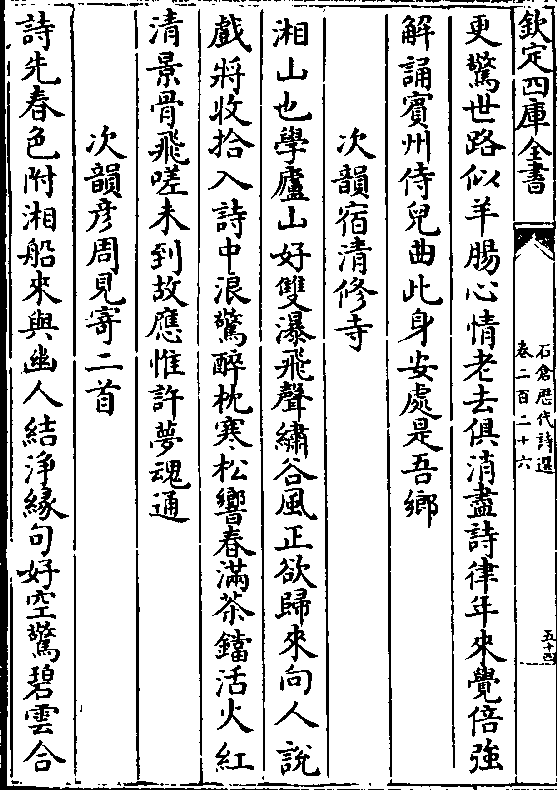 欽定四庫全書
石倉歷代詩選
卷二百二十六
五十四
更驚世路似羊腸心情老去俱消盡詩律年來覺倍強
解誦賓州侍兒曲此身安處是吾鄉
次韻宿清修寺
湘山也學廬山好雙瀑飛聲繡谷風正欲歸來向人說
戲將收拾入詩中浪驚醉枕寒松響春滿茶鐺活火紅
清景骨飛嗟未到故應惟許夢魂通
次韻彥周見寄二首
詩先春色附湘船來與幽人結淨緣句好空驚碧雲合